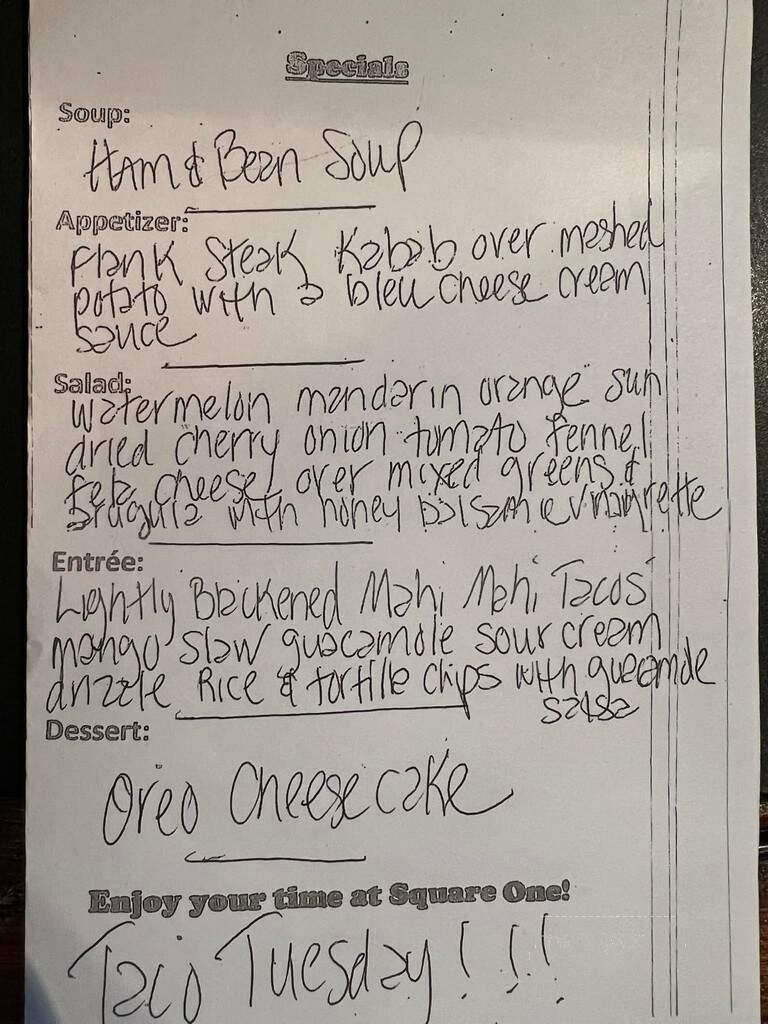 Specials
Soup:
Ham & Bean Soup
Appetizer:
Flank Steak Kabab over mashed
potato with a bleu cheese cream
sauce
Salad:
Watermelon mandarin orange sun
dried cherry onion tomato fennel
feta cheese over mixed greens &
arugula with honey balsamic vinaigrette
Entrée:
Lightly Blackened Mahi Mahi Tacos
mango slaw guacamole sour cream
drizzle Rice & tortilla chips with guacamole
salsa
Dessert:
Oreo Cheese cake
Enjoy your time at Square One!
Taco Tuesday!!!